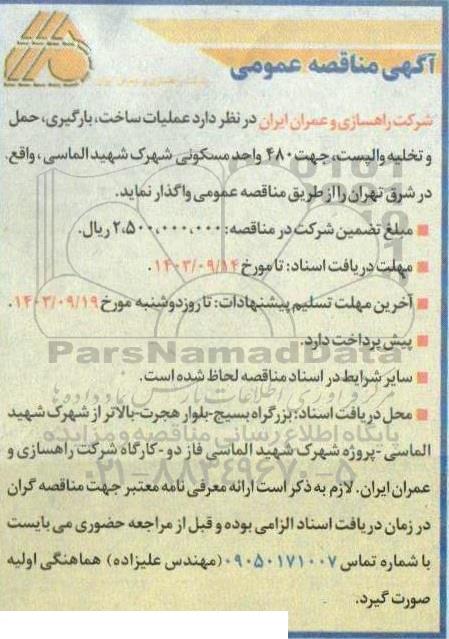 آگهی مناقصه عمومی
شرکت راهسازی و عمران ایران در نظر دارد عملیات ساخت، بارگیری، حمل
و تخلیه والپست، جهت ۴۸۰ واحد مسکونی شهرک شهید الماسی، واقع
در شرق تهران را از طریق مناقصه عمومی واگذار نماید.
مبلغ تضمین شرکت در مناقصه: ۲،۵۰۰،۰۰۰،۰۰۰ ریال.
مهلت دریافت اسناد: تا مورخ ۱۴۰۳/۰۹/۱۴.
آخرین مهلت تسلیم پیشنهادات: تا روز دوشنبه مورخ ۱۴۰۳/۰۹/۱۹.
پیش پرداخت دارد.
ParsNamadData
سایر شرایط در اسناد مناقصه لحاظ شده است.
محل دریافت اسناد: بزرگراه بسیج-بلوار هجرت-بالاتر از شهرک شهید
پایگاه اطلاع رسانی مناقصه و مزایده
الماسی -پروژه شهرک شهید الماسی فاز دو-کارگاه شرکت راهسازی و
۰۲۱-۸۸۳۴۹۶۷۰-۵
عمران ایران. لازم به ذکر است ارائه معرفی نامه معتبر جهت مناقصه گران
در زمان دریافت اسناد الزامی بوده و قبل از مراجعه حضوری می بایست
با شماره تماس ۰۹۰۵۰۱۷۱۰۰۷ (مهندس علیزاده) هماهنگی اولیه
صورت گیرد.